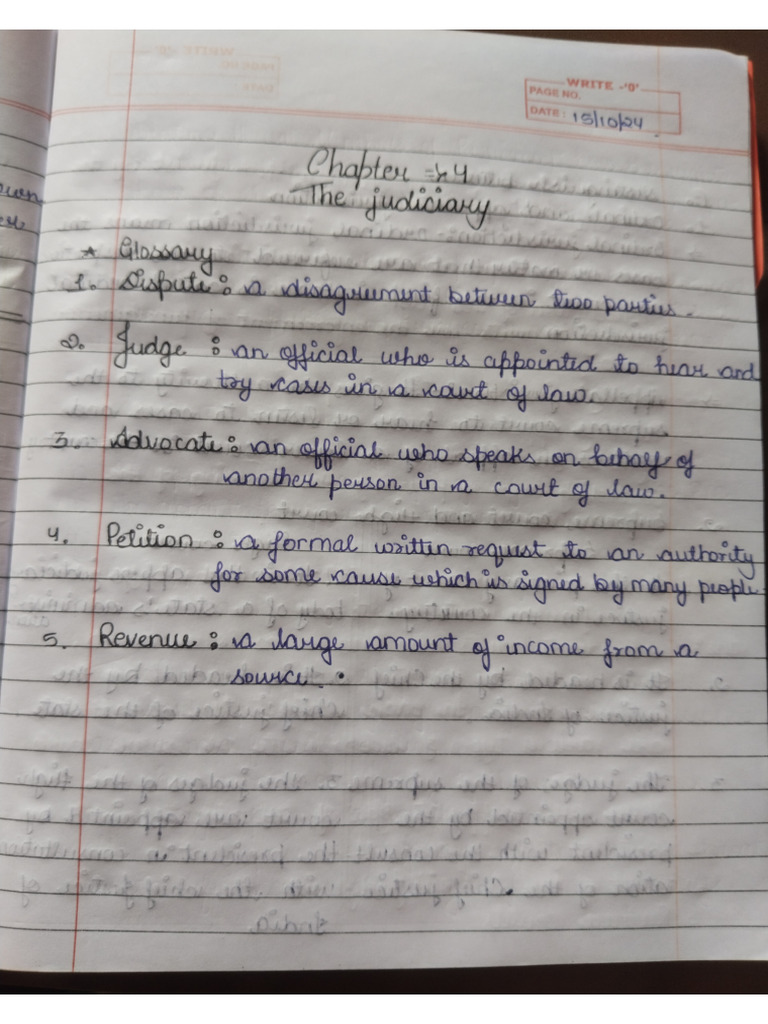 WRITE -'0'
PAGE NO.
DATE: 15/10/24
Chapter => 4
The judiciary
* Glossary
1. Dispute : a disagreement between two parties.
2. Judge : an official who is appointed to hear and
try cases in a court of law.
3. Advocate : an official who speaks on behalf of
another person in a court of law.
4. Petition : a formal written request to an authority
for some cause which is signed by many people
5. Revenue : a large amount of income from a
source.